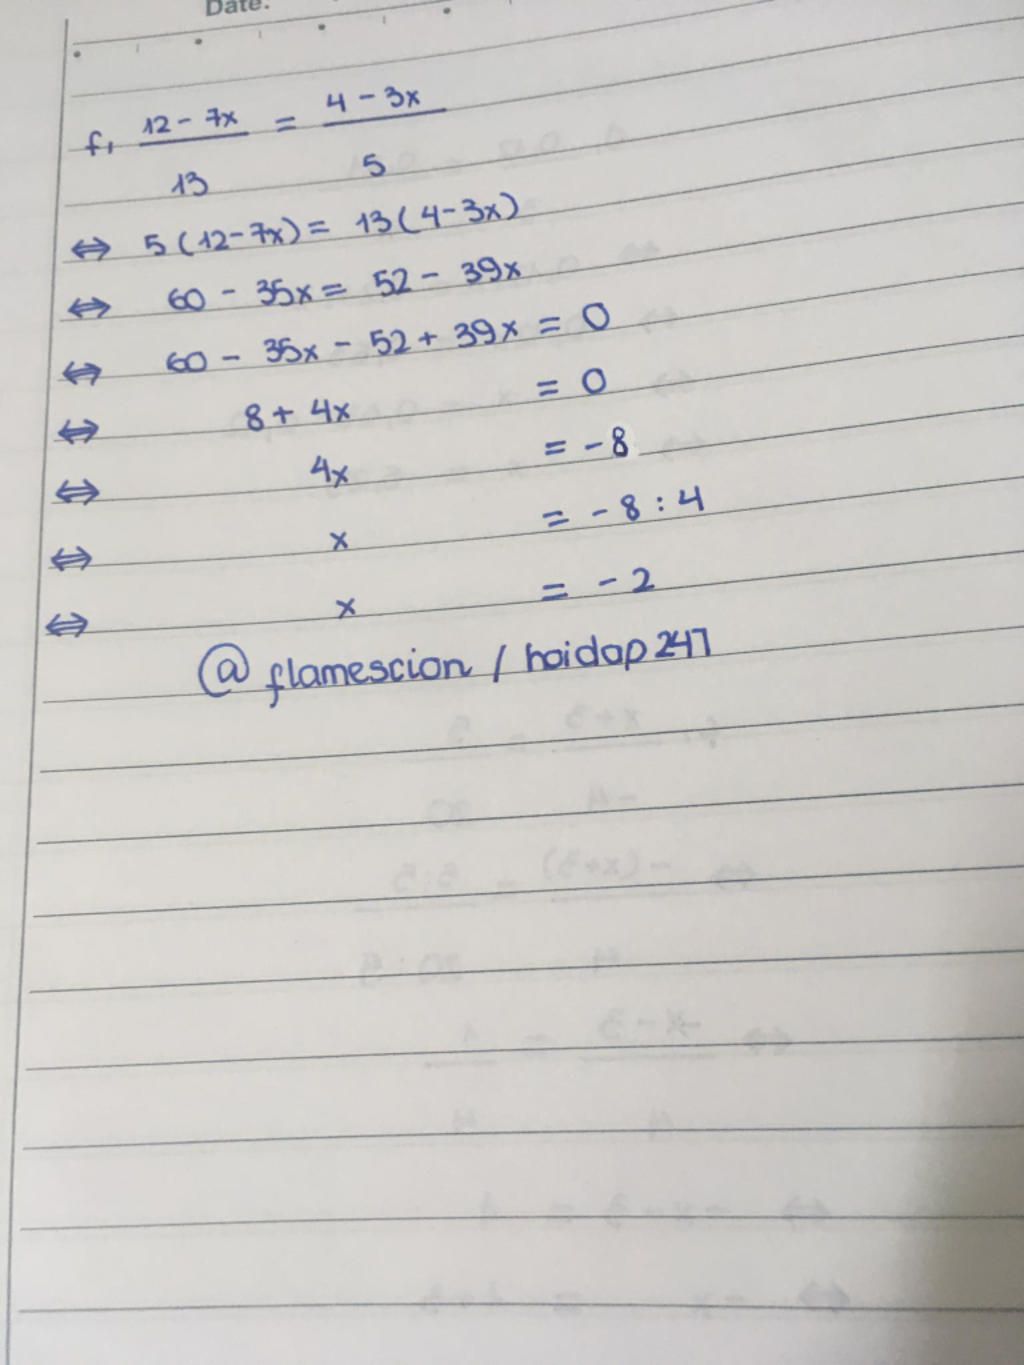 Date:
f, 12 - 7x / 13 = 4 - 3x / 5
⇔ 5(12-7x) = 13(4-3x)
⇔ 60 - 35x = 52 - 39x
⇔ 60 - 35x - 52 + 39x = 0
⇔ 8 + 4x = 0
⇔ 4x = -8
⇔ x = -8 : 4
⇔ x = -2
@flamescion / hoidap247